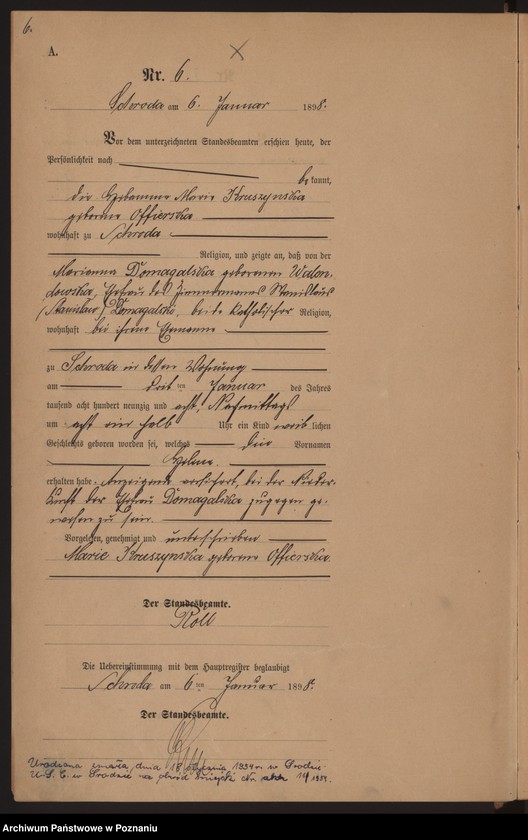 6.
A.
Nr. 6.
Schroda am 6. Januar 1898.
Vor dem unterzeichneten Standesbeamten erschien heute, der
Persönlichkeit nach
be kannt,
die Hebamme Marie Kruszynska
geborene Offierska
wohnhaft zu Schroda
Religion, und zeigte an, daß von der
Marianna Domagalska geborenen Walen-
dowska, Ehefrau des Zimmermanns Stanislaus
(Stanislaw) Domagalski, beide katholischer Religion,
wohnhaft bei ihrem Ehemanne
zu Schroda in dessen Wohnung
am drit ten Januar des Jahres
tausend acht hundert neunzig und acht, Nachmittags
um acht ein halb Uhr ein Kind weib lichen
Geschlechts geboren worden sei, welches den Vornamen
Helene
erhalten habe. Anzeigende versichert, bei der Nieder-
kunft der Ehefrau Domagalska zugegen ge-
wesen zu sein.
Vorgelesen, genehmigt und unterschrieben
Marie Kruszynska geborene Offierska
Der Standesbeamte.
Roll
Die Uebereinstimmung mit dem Hauptregister beglaubigt
Schroda am 6ten Januar 1898.
Der Standesbeamte.
zmarła, dnia 18 stycznia w Środzie
U.S.C. w Środzie na obwód miejski Nr. aktu
Archiwum Państwowe w Poznaniu